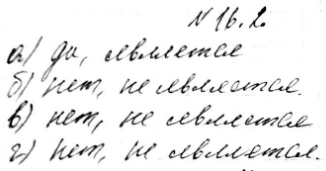 № 16.2.
а) да, является
б) нет, не является.
в) нет, не является
г) нет, не является.